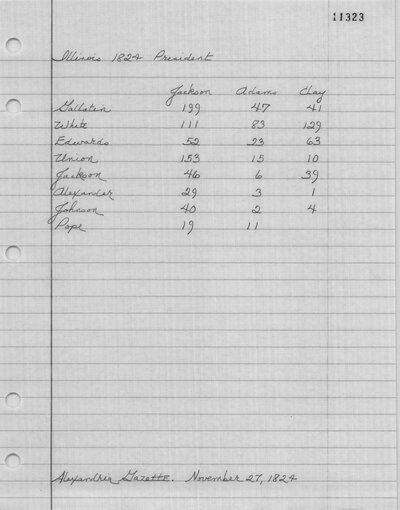 11323
Illinois 1824 President
Jackson Adams Clay
Gallatin 199 47 41
White 111 83 129
Edwards 52 23 63
Union 153 15 10
Jackson 46 6 39
Alexander 29 3 1
Johnson 40 2 4
Pope 19 11
Alexandria Gazette. November 27, 1824